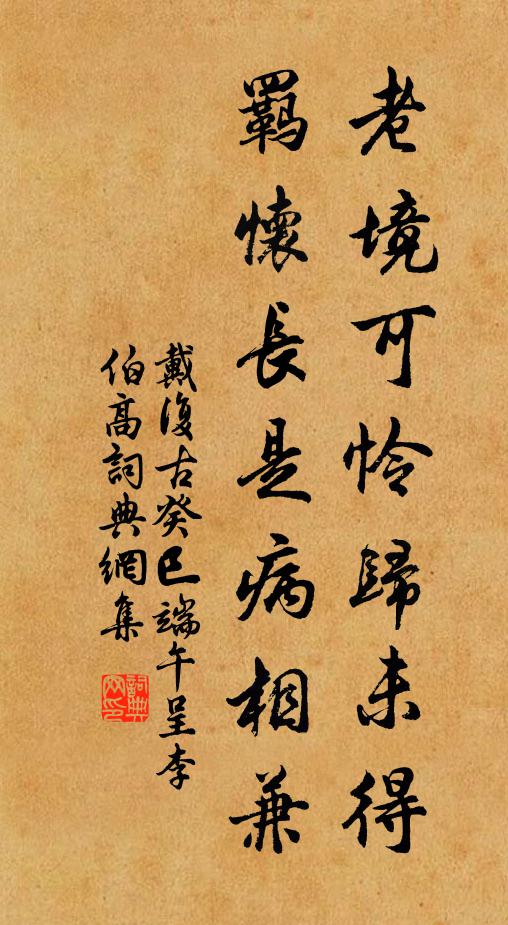 老境可怜歸未得
羈懷長是病相兼
戴復古癸巳端午呈李
伯高詞典網集
詞典
网印